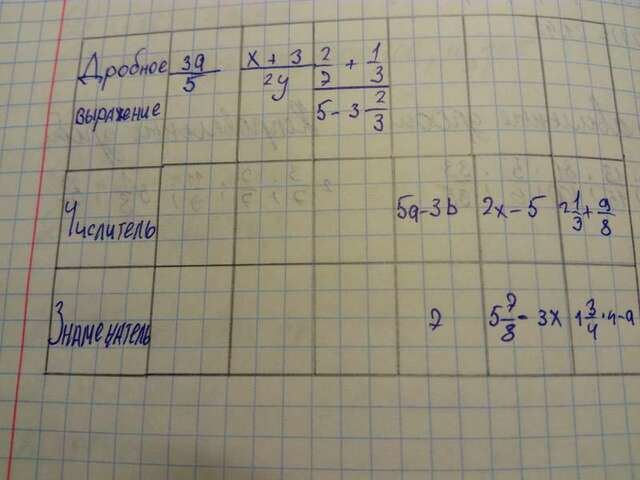 Дробное выражение 3a/5 x + 3/2y 2/7 + 1/3 / 5 - 3 2/3
Числитель 5a-3b 2x-5 2 1/3 + 9/8
Знаменатель 7 5 7/8 - 3x 1 3/4 · 4-a